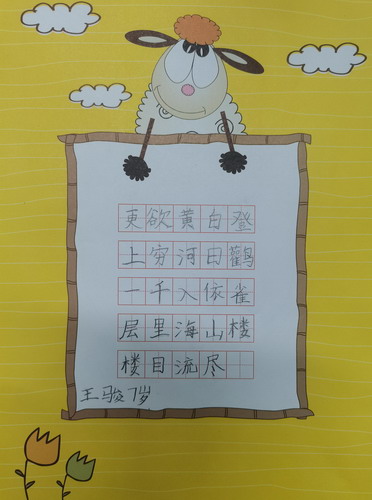 登鹳雀楼
白日依山尽
黄河入海流
欲穷千里目
更上一层楼
王骏7岁